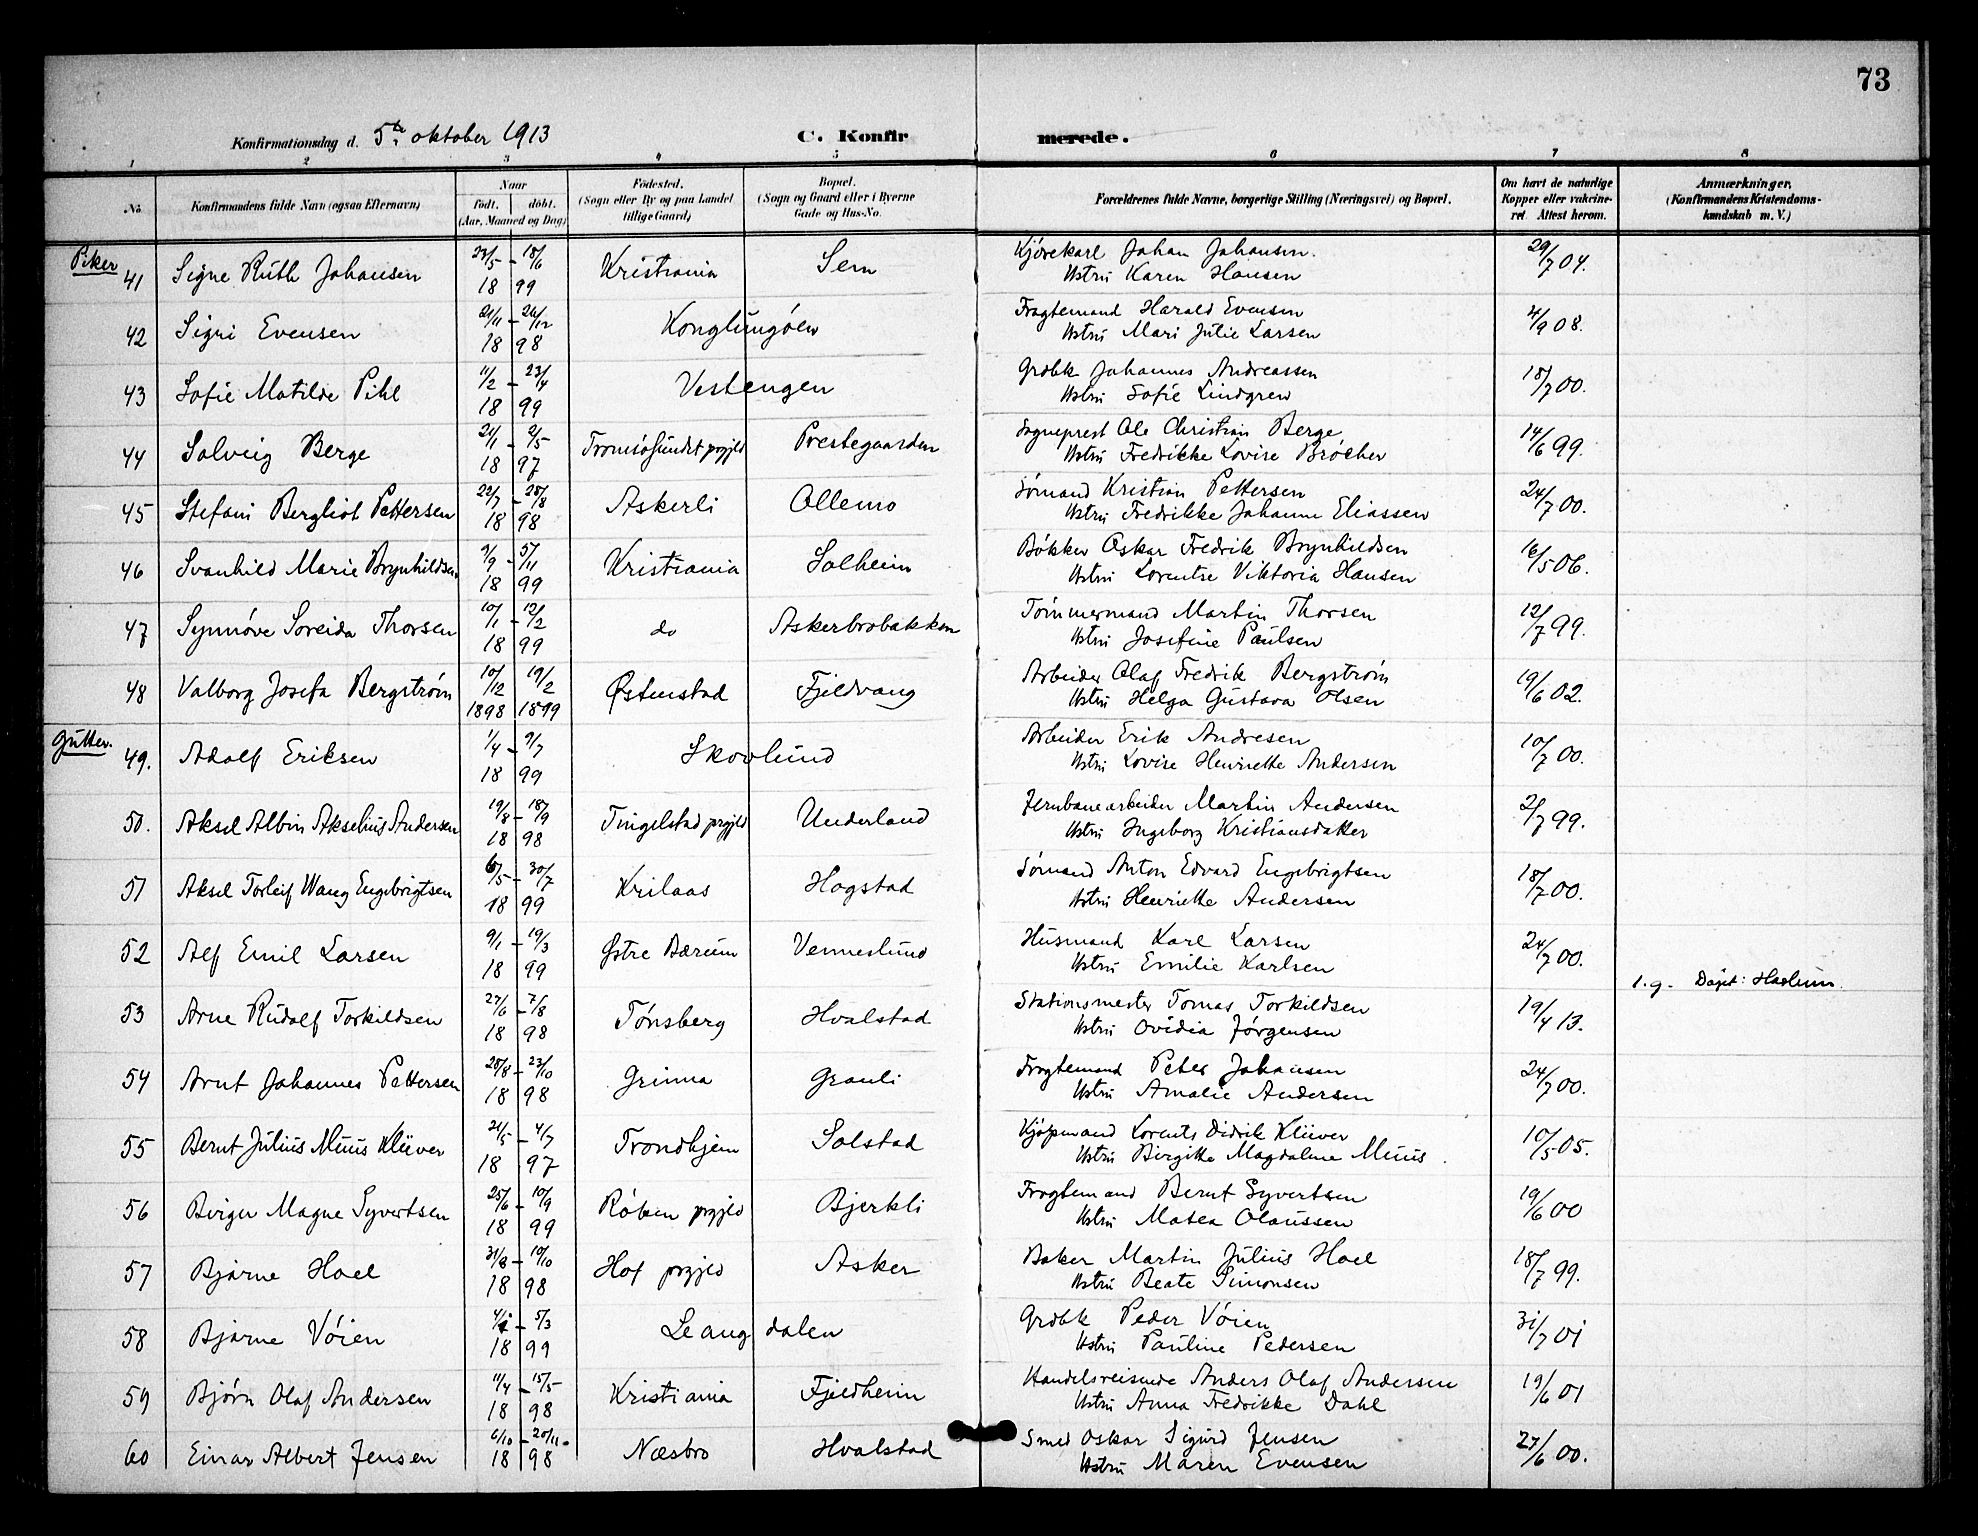 73
Konfirmationsdag d. 5te oktober 1913 C. Konfirmerede.
1 2 3 4 5 6 7 8
No. Konfirmandens fulde Navn (ogsaa Efternavn) Naar født. døbt. (Aar, Maaned og Dag) Fødested. (Sogn eller By og paa Landet tillige Gaard) Bopæl. (Sogn og Gaard eller i Byerne Gade og Hus-No. Forældrenes fulde Navne, borgerlige Stilling (Næringsvei) og Bopæl. Om havt de naturlige Kopper eller vakcineret. Attest herom. Anmærkninger, (Konfirmandens Kristendomskundskab m. V.)
Piker
41 Signe Ruth Johansen 18/6 1899 Kristiania Sem Kjørekarl Johan Johansen. 29/7 04.
Hstru Karen Hansen
42 Sigri Evensen 21/11 - 26/12 1898 Konglungøen Fragtemand Harald Evensen 4/9 08.
Hstru Mari Julie Larsen
43 Sofie Matilde Pihl 11/2 - 23/4 1899 Vestengen Grdbk Johannes Andreassen 18/7 00.
Hstru Sofie Lindgren
44 Solveig Berge 21/1 - 2/5 1897 Tromøsundet prgjld Prestegaarden Sogneprest Ole Christian Berge 14/6 99.
Hstru Fredrikke Lovise Bröcher
45 Stefani Bergliot Pettersen 22/7 - 28/8 1898 Askerli Ollemo Sømand Kristian Pettersen 24/7 00.
Hstru Fredrikke Johanne Eliassen
46 Svanhild Marie Brynhildsen 9/9 - 5/11 1899 Kristiania Solheim Bøkker Oskar Fredrik Brynhildsen 16/5 06.
Hstru Lorentse Viktoria Hansen
47 Synnøve Soreida Thorsen 10/1 - 12/2 1899 do Askerbrobakken Tømmermand Martin Thorsen 12/7 99.
Hstru Josefine Paulsen
48 Valborg Josefa Bergstrøm 10/12 1898 19/2 1899 Østenstad Fjeldvang Arbeider Olaf Fredrik Bergstrøm 19/6 02.
Hstru Helga Gustava Olsen
Gutter.
49. Adolf Eriksen 1/4 - 9/7 1899 Skovlund Arbeider Erik Andresen 10/7 00.
Hstru Lovise Henriette Andersen
50. Aksel Albin Akselius Andersen 19/8 - 18/9 1898 Tingelstad prgjld Underland Jernbanearbeider Martin Andersen 2/7 99.
Hstru Ingeborg Kristiansdatter
51 Aksel Torleif Wang Engebrigtsen 6/5 - 30/7 1899 Krilaas Hogstad Sømand Anton Edvard Engebrigtsen 18/7 00.
Hstru Henriette Andersen
52 Alf Emil Larsen 9/1 - 19/3 1899 Østre Bærum Venneslund Husmand Karl Larsen 24/7 00.
Hstru Emilie Karlsen
1.g. Døpt: Haslum.
53 Arne Rudolf Torkildsen 27/6 - 7/8 1898 Tønsberg Hvalstad Stationsmester Tomas Torkildsen 19/4 13.
Hstru Ovidia Jørgensen
54 Arnt Johannes Pettersen 28/8 - 23/10 1898 Grinna Granli Fragtemand Peter Johansen 24/7 00.
Hstru Amalie Andersen
55 Bernt Julius Muus Klüver 21/5 - 4/7 1897 Trondhjem Solstad Kjøpmand Lorents Didrik Klüver 10/5 05.
Hstru Birgitte Magdalene Muus.
56 Birger Magne Syvertsen 25/6 - 10/9 1899 Røken prgjld Bjerkli Fragtemand Bernt Syvertsen 19/6 00
Hstru Matea Olaussen
57 Bjarne Hoel 31/8 - 10/10 1898 Hof prgjld Asker Baker Martin Julius Hoel 18/7 99.
Hstru Beate Simonsen
58 Bjarne Vøien 5/3 1899 Leangdalen Grdbk Peder Vøien 31/7 01
Hstru Pauline Pedersen
59 Bjørn Olaf Andersen 11/4 - 15/5 1898 Kristiania Fjeldheim Handelsreisende Anders Olaf Andersen 19/6 01
Hstru Anna Fredrikke Dahl
60 Einar Albert Jensen 6/10 - 20/11. 1898 Næsbro Hvalstad Smed Oskar Sigurd Jensen 27/6 00.
Hstru Maren Evensen